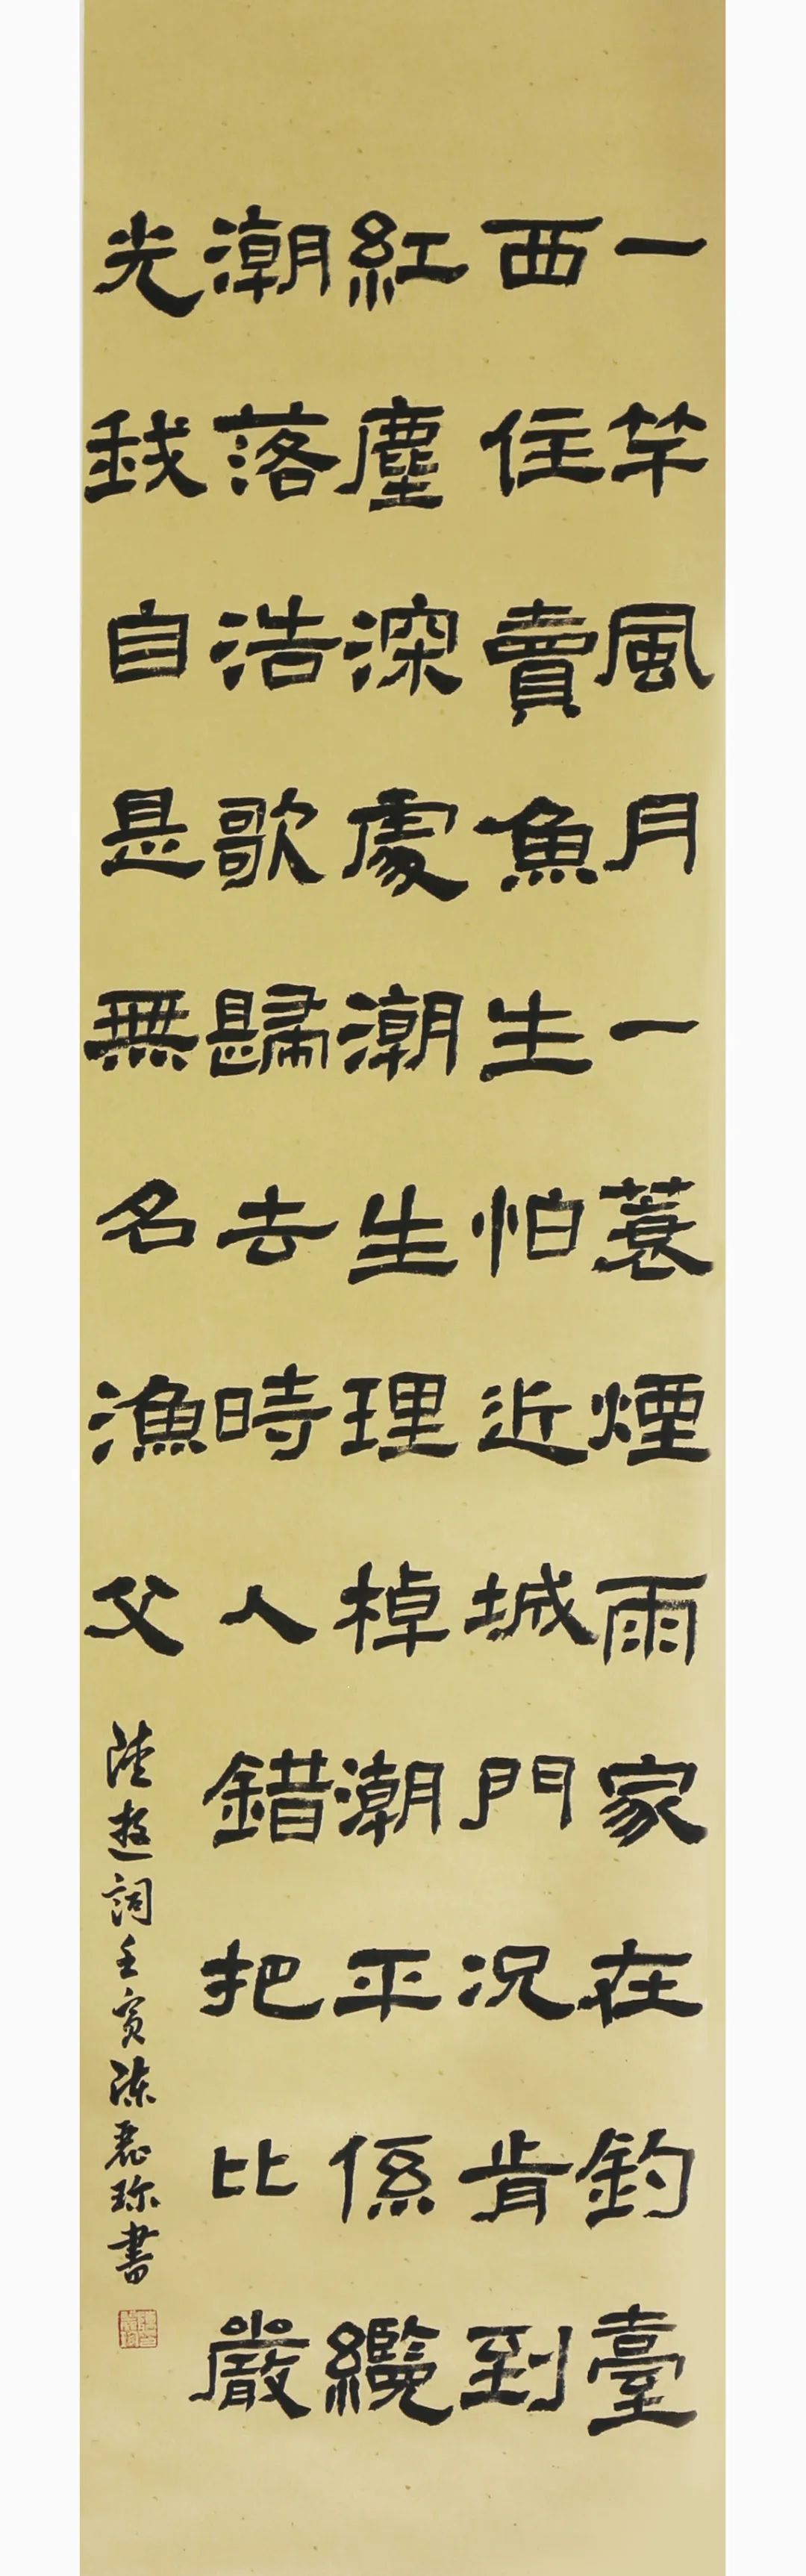 一竿風月一蓑煙雨家在釣臺
西住賣魚生怕近城門況肯到
紅塵深處潮生理棹潮平係纜
潮落浩歌歸去時人錯把比嚴
光我自是無名漁父
陸遊詞壬寅陳珍書